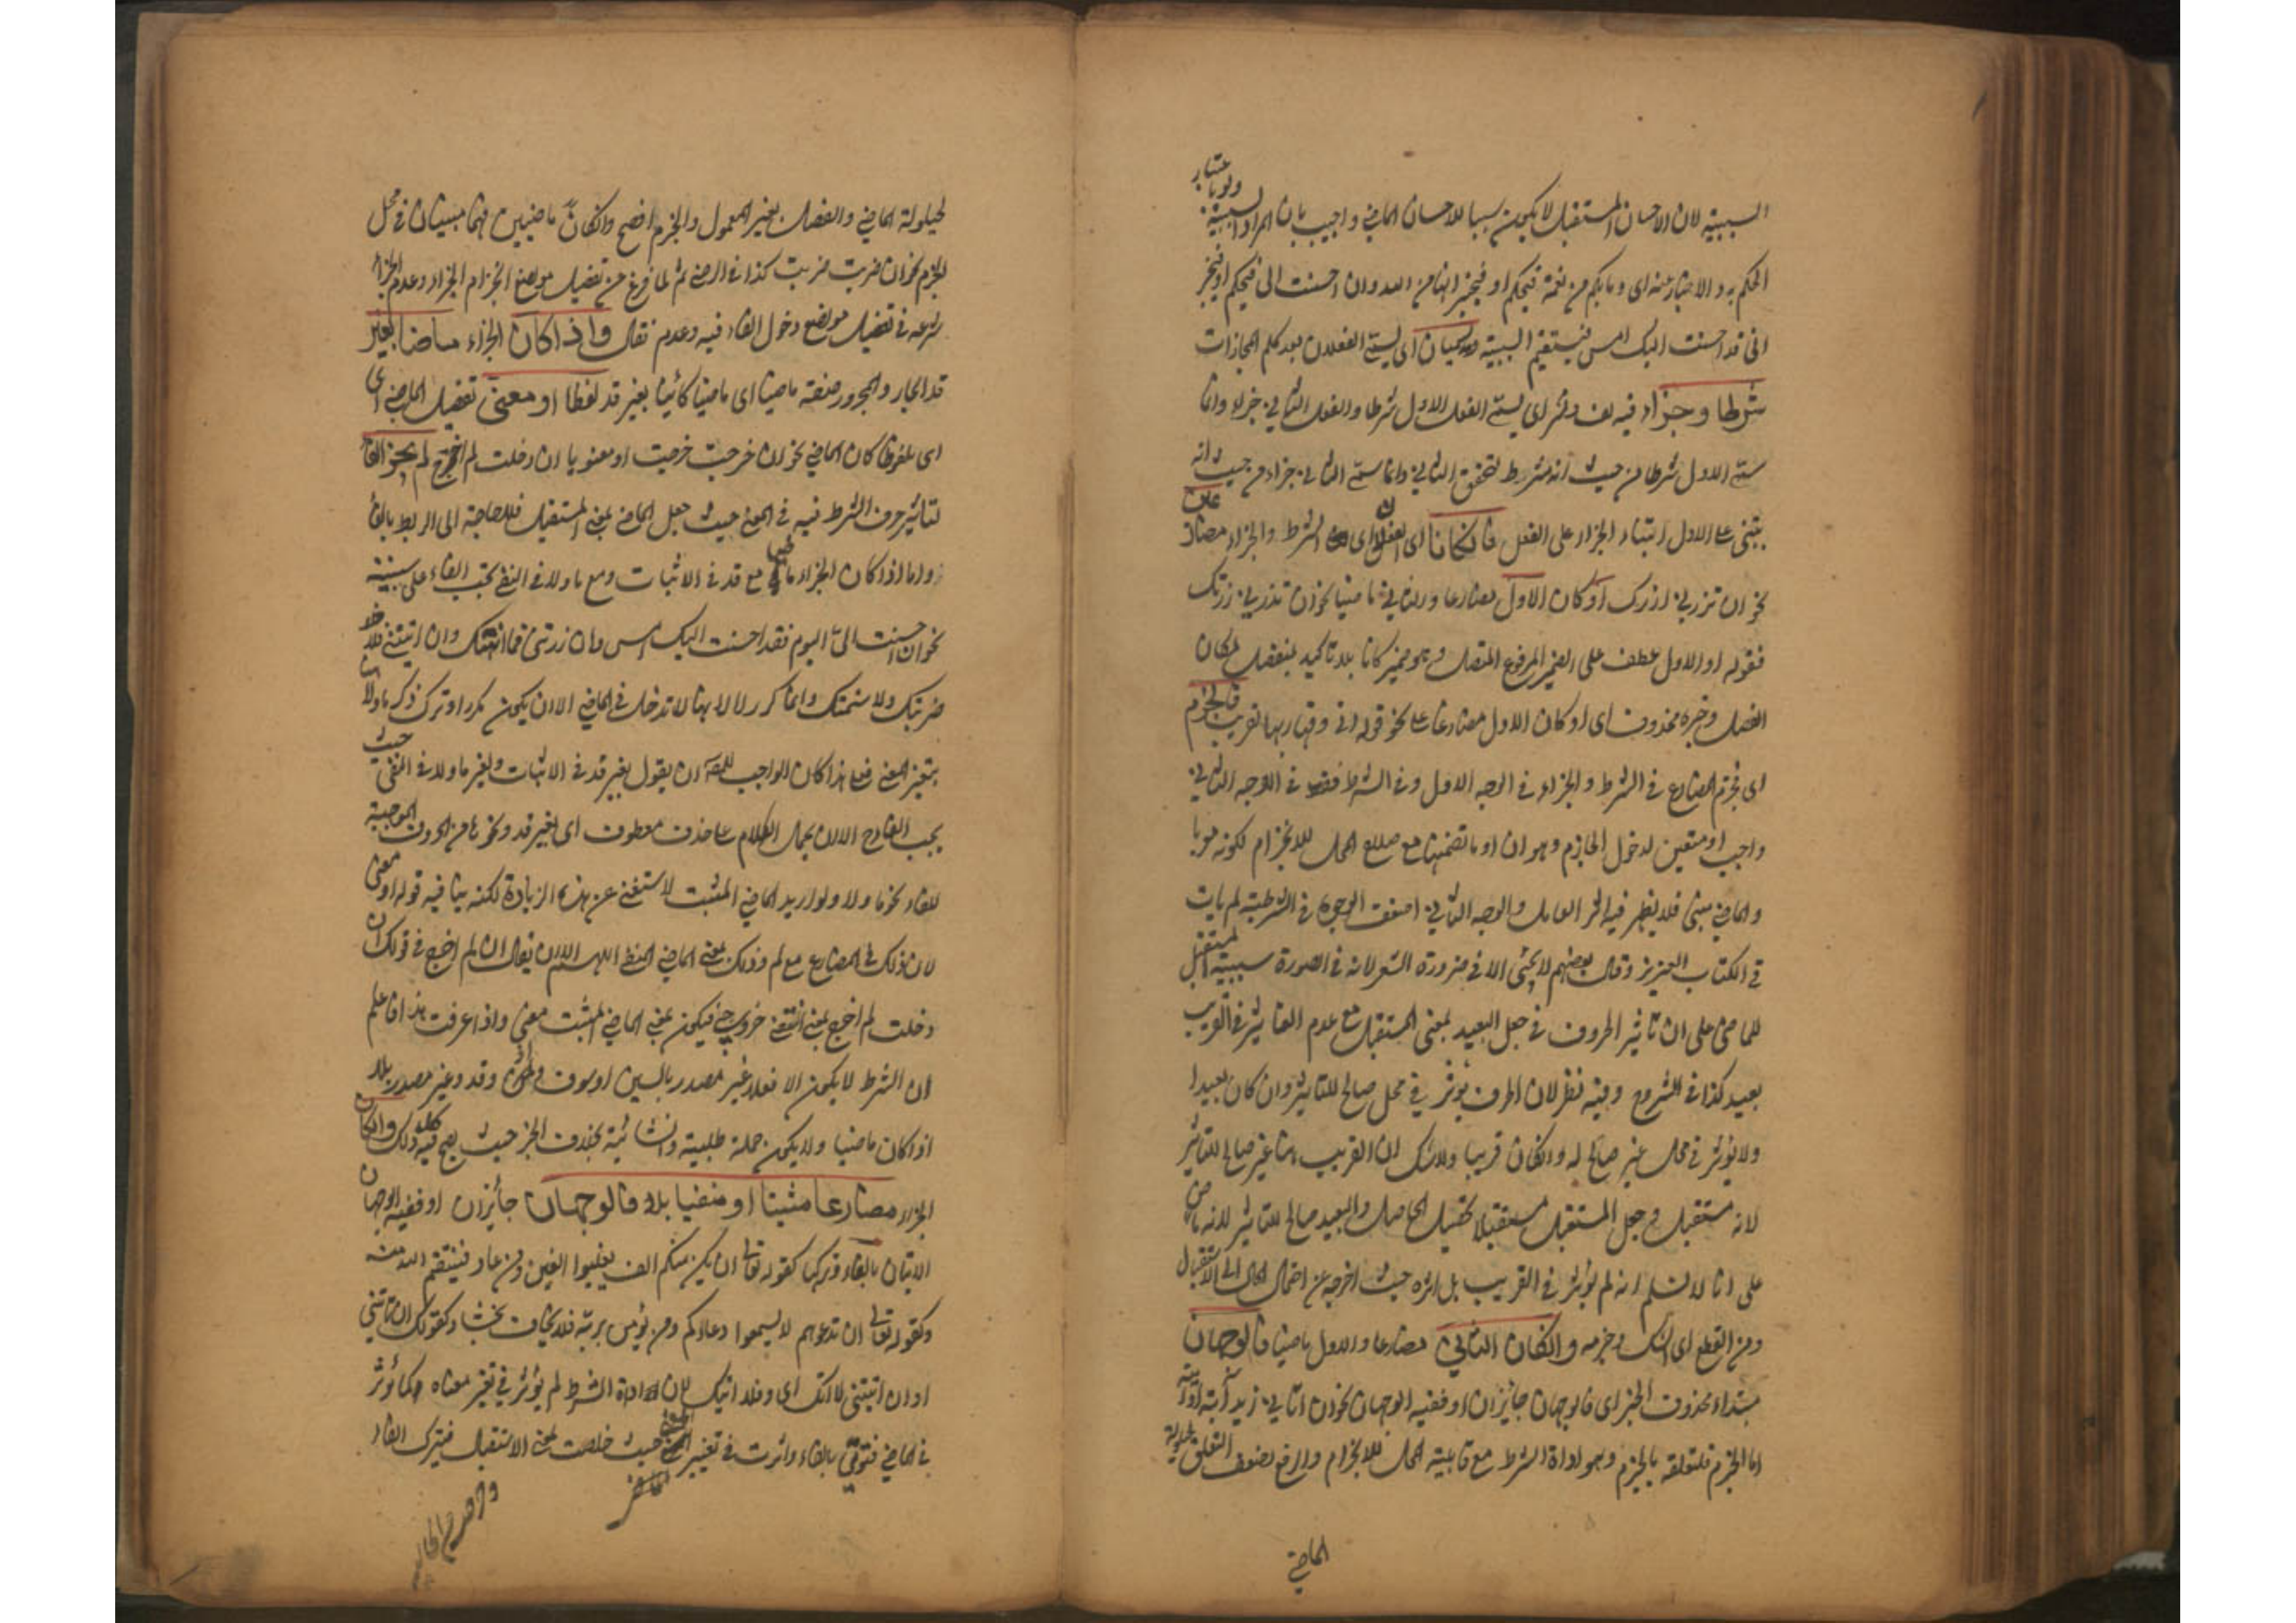 السببية لان الاحسان المستقبل لا يكون سببا للاحسان الماضي واجيب بان المراد السببية ولو باعتبار
الحكم به والاخبار عنه اى وما بكم من نعمة وان احسنت الى فيحكم او فيخبر
انى قد احسنت اليك امس فيستقيم السببية ويسميان اى يسمى الفعلان بعد كلم المجازات
شرطا وجزاء فيه لف ونشر اى يسمى الفعل الاول شرطا والفعل الثاني جزاء وانما
سمى الاول شرطا من حيث انه شرط لتحقق الثاني وانما سمى الثاني جزاء من حيث انه
يبتنى على الاول ابتناء الجزاء على الفعل فان كانا اى الفعلان اى الشرط والجزاء مضارعان
نحو ان تزرني ازرك او كان الاول مضارعا والثاني ماضيا نحو ان تزرني زرتك
فقوله او الاول عطف على الضمير المرفوع المتصل وهو ضمير كانا بلا تاكيد بمنفصل لمكان
الفصل وخبره محذوف اى او كان الاول مضارعا على نحو قوله انى وقيار بها لغريب فالجزم
اى فجزم المضارع في الشرط والجزاء في الوجه الاول وفي الشرط فقط في الوجه الثاني
واجب او متعين لدخول الجازم وهو ان او ما تضمنها مع صلاح المحل للانجزام لكونه معربا
والماضي مبنى فلا يظهر فيه اثر العامل والوجه الثاني اضعف الوجوه في الشرطية لم يات
في الكتاب العزيز وقال بعضهم لا يجئ الا في ضرورة الشعر لانه في الصورة سببية المستقبل
للماضى على ان تاثير الحروف في جعل البعيد بمعنى المستقبل مع عدم التاثير في القريب
بعيد كذا في الشروح وفيه نظر لان الحرف يؤثر في محل صالح للتاثير وان كان بعيدا
ولا يؤثر في محل غير صالح له وان كان قريبا ولا شك ان القريب ههنا غير صالح للتاثير
لانه مستقبل وجعل المستقبل مستقبلا تحصيل الحاصل والبعيد صالح للتاثير لانه ماض
على انا لا نسلم انه لم يؤثر في القريب بل اثره حيث اخرجه عن احتمال الحال الى الاستقبال
ومن القطع اى الشك وجزمه وان كان الثاني مضارعا والاول ماضيا فالوجهان
مبتداء محذوف الخبر اى فالوجهان جائزان او ففيه الوجهان نحو ان اتاني زيد آته او آتيه
اما الجزم فلتعلقه بالجزم وهو اداة الشرط مع قابلية المحل للانجزام والرفع لضعف التعلق لحيلولة
الماضي
لحيلولة الماضي والفصل بغير المعمول والجزم افصح وان كانا ماضيين فهما مبنيان في محل
الجزم نحو ان ضربت ضربت كذا في الرضى ثم لما فرغ من تفصيل مواضع انجزام الجزاء وعدم انجزامه
شرع في تفصيل مواضع دخول الفاء فيه وعدمه فقال واذا كان الجزاء ماضيا بغير
قد الجار والمجرور صفة ماضيا اى ماضيا كائنا بغير قد لفظا او معنى تفصيل الماضي اى
اى ملفوظا كان الماضي نحو ان خرجت خرجت او معنويا ان دخلت لم اخرج لم يجز الفاء
لتاثير حرف الشرط فيه في المعنى حيث جعل الماضي بمعنى المستقبل فلا حاجة الى الربط بالفاء
واما اذا كان الجزاء ماضيا مع قد في الاثبات ومع ما ولا في النفى تجب الفاء
نحو ان احسنت الى اليوم فقد احسنت اليك امس وان زرتنى فما اهنتك وان اتيتنى فلا
ضربتك ولا شتمتك وانما كرر لا لانها لا تدخل في الماضي الا ان يكون مكررا وترك ذكر ما ولا
بتغير المعنى فعلى هذا كان الواجب للمص ان يقول بغير قد في الاثبات وبغير ما ولا في النفى حيث
يجب الفاء ح الا ان يحمل الكلام على حذف معطوف اى بغير قد ونحوها من الحروف الموجبة
للفاء نحو ما ولا ولو اريد الماضي المثبت لاستغنى عن هذه الزيادة لكنه ينافيه قوله او معنى
لان ذلك في المضارع مع لم وذلك بمعنى الماضي المنفى اللهم الا ان يقال ان لم اخرج في قولك ان
دخلت لم اخرج بمعنى انتفى خروجي فيكون بمعنى الماضي المثبت معنى واذا عرفت هذا فاعلم
ان الشرط لا يكون الا فعلا غير مصدر بالسين او سوف وقد وغير مصدر بلا
اذا كان ماضيا ولا يكون جملة طلبية وانشائية بخلاف الجزاء حيث يصح فيه كل ذلك وان كان
الجزاء مضارعا مثبتا او منفيا بلا فالوجهان جائزان او ففيه الوجهان
الاتيان بالفاء وتركها كقوله تعالى ان يكن منكم الف يغلبوا الفين ومن عاد فينتقم الله منه
وكقوله تعالى ان تدعوهم لا يسمعوا دعاءكم ومن يؤمن بربه فلا يخاف بخسا وكقولك ان تاتنى
او ان اتيتنى لا اتك اى وفلا اتيك لان اداة الشرط لم يؤثر في تغير معناه كما يؤثر
في الماضي فتوتى بالفاء واثرت في تغيير المعنى حيث خلصت لمعنى الاستقبال فيترك الفاء